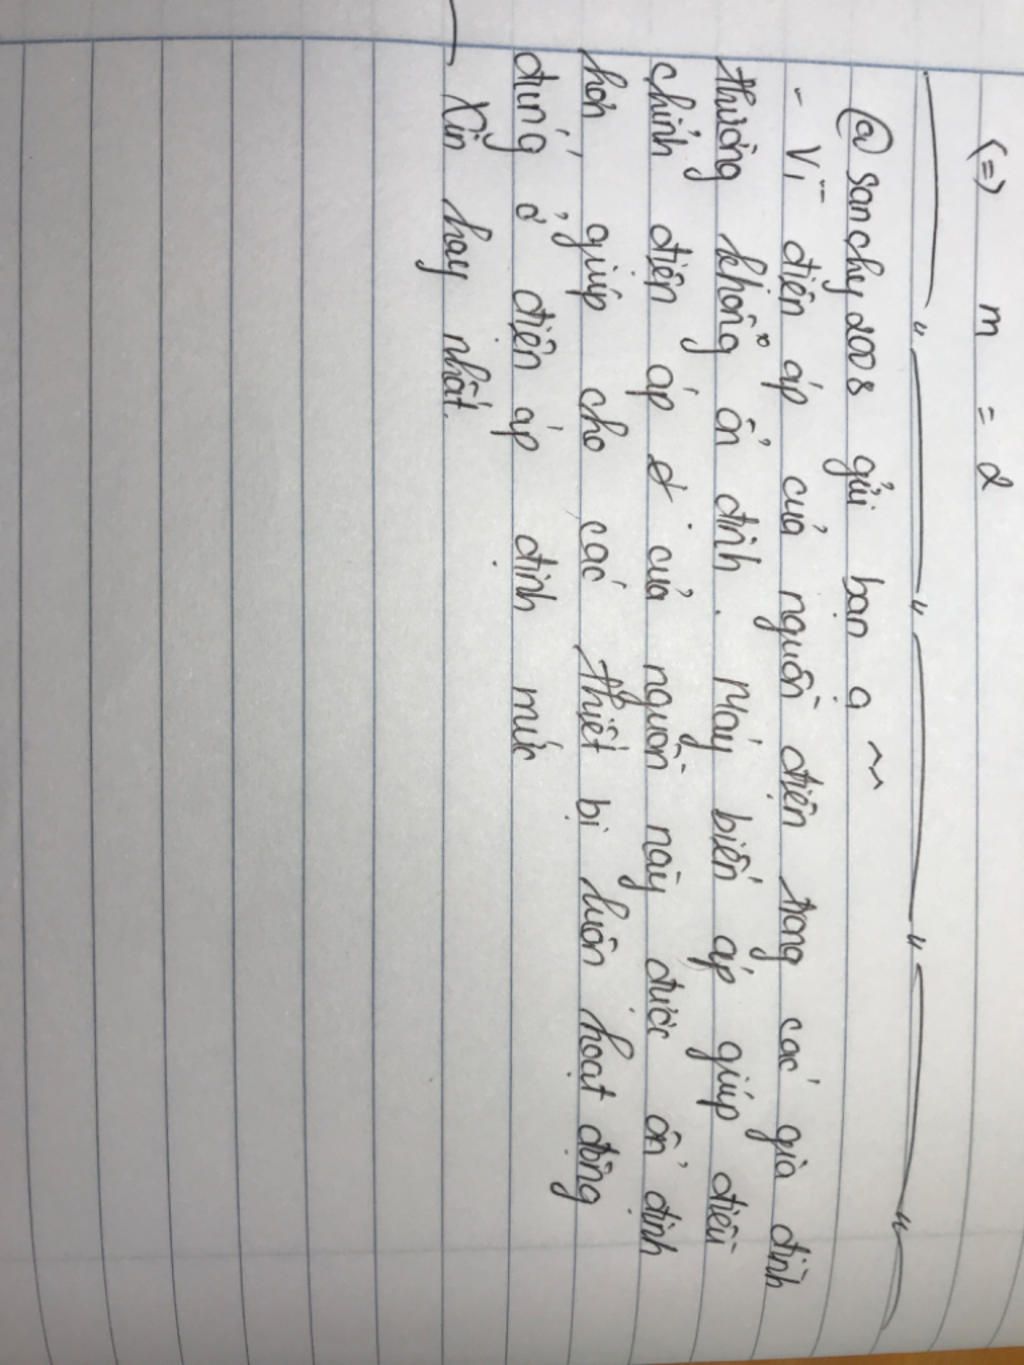 (=) m = 2
@ sanchy2008 gửi bạn ạ ~
- Vì điện áp của nguồn điện trong các gia đình
thường không ổn định. Máy biến áp giúp điều
chỉnh điện áp của nguồn này được ổn định
hơn, giúp cho các thiết bị luôn hoạt động
đúng ở điện áp định mức
Xin hay nhất.